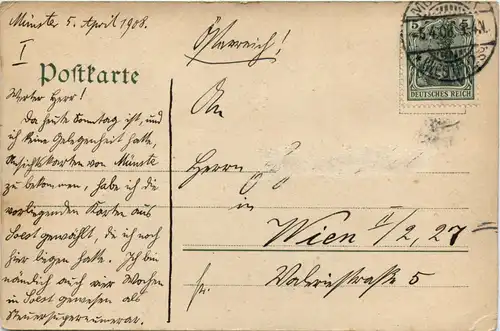 Münster 5. April 1908.
I
Österreich!
Postkarte
Werter Herr!
Da heute Sonntag ist, und
ich keine Gelegenheit hatte,
Ansichtskarten von Münster
zu bekommen, habe ich die
vorliegenden Karten aus
Soest gewählt, die ich noch
hier liegen hatte. Ich bin
nämlich auch vier Wochen
in Soest gewesen als
Steuersupernumerar.
An
Herrn
in
Wien II/2, 27
Valeriestraße 5
5 5
5.4.08
DEUTSCHES REICH